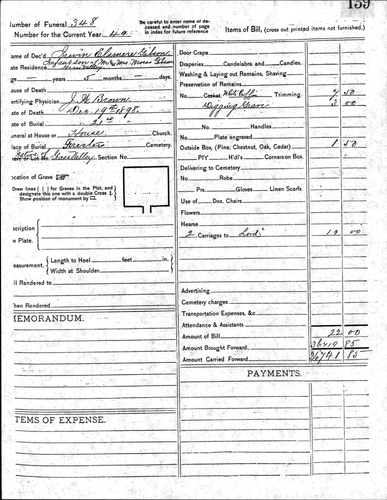 159
Number of Funeral 348
Number for the Current Year 40
Be careful to enter name of deceased and number of page in index for future reference
Items of Bill, (cross out printed items not furnished.)
ame of Dec'd Irwin Clemere Gibson
Infant son of Mr & Mrs Moses Gibson
ate Residence Grass Valley
ge — years 5 months — days.
ause of Death
ertifying Physician J. H. Brown
ate of Death Dec. 19th 1898.
ate of Burial 21st
uneral at House or House Church.
lace of Burial Cemetery.
Grass Valley Section No.
ocation of Grave
Draw lines for Graves in the Plot, and designate this one with a double Cross
Show position of monument by
scription
n Plate.
easurement. Length to Heel feet in.
Width at Shoulder
ill Rendered to
hen Rendered
MEMORANDUM.
TEMS OF EXPENSE.
Door Crape
Draperies Candelabra and Candles.
Washing & Laying out Remains, Shaving
Preservation of Remains
No. Casket, White Coffin Trimming 7 50
Digging Grave 2 00
No. Handles
Plate engraved
Outside Box, (Pine, Chestnut, Oak, Cedar) 1 50
PIY H'd's Corners on Box.
Delivering to Cemetery
No. Robe
Prs. Gloves Linen Scarfs.
Use of Doz. Chairs
Flowers
Hearse
2 Carriages to 10 00
Advertising
Cemetery charges
Transportation Expenses, &c
Attendance & Assistants
Amount of Bill 22 00
Amount Brought Forward 36719 85
Amount Carried Forward 36741 85
PAYMENTS.